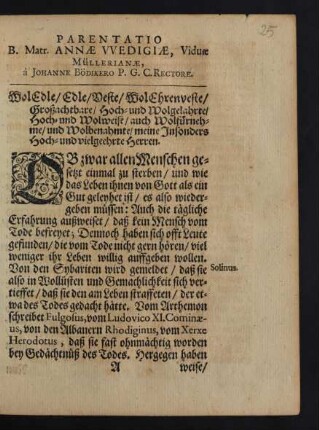 25
PARENTATIO
B. Matr. ANNÆ VVEDIGIÆ, Viduæ
MÜLLERIANÆ,
á JOHANNE BÖDIKERO P. G. C. RECTORE.
WolEdle/ Edle/ Veste/ WolEhrenveste/
Großachtbare/ Hoch- und Wolgelahrte/
Hoch- und Wolweise/ auch Wolfürneh-
me/ und Wolbenahmte/ meine Insonders
Hoch- und vielgeehrte Herren.
OB zwar allen Menschen ge-
setzt einmal zu sterben/ und wie
das Leben ihnen von Gott als ein
Gut geleyhet ist/ es also wieder-
geben müssen: Auch die tägliche
Erfahrung außweiset/ daß kein Mensch vom
Tode befreyet; Dennoch haben sich offt Leute
gefunden/ die vom Tode nicht gern hören/ viel
weniger ihr Leben willig auffgeben wollen.
Von den Sybariten wird gemeldet/ daß sie
also in Wollüsten und Gemächlichkeit sich ver-
tieffet/ daß sie den am Leben straffeten/ der et-
wa des Todes gedacht hätte. Vom Arthemon
schreibet Fulgosus, vom Ludovico XI. Cominæ-
us, von den Albanern Rhodiginus, vom Xerxe
Herodotus, daß sie fast ohnmächtig worden
bey Gedächtnüß des Todes. Hergegen haben
A weise/
Solinus.